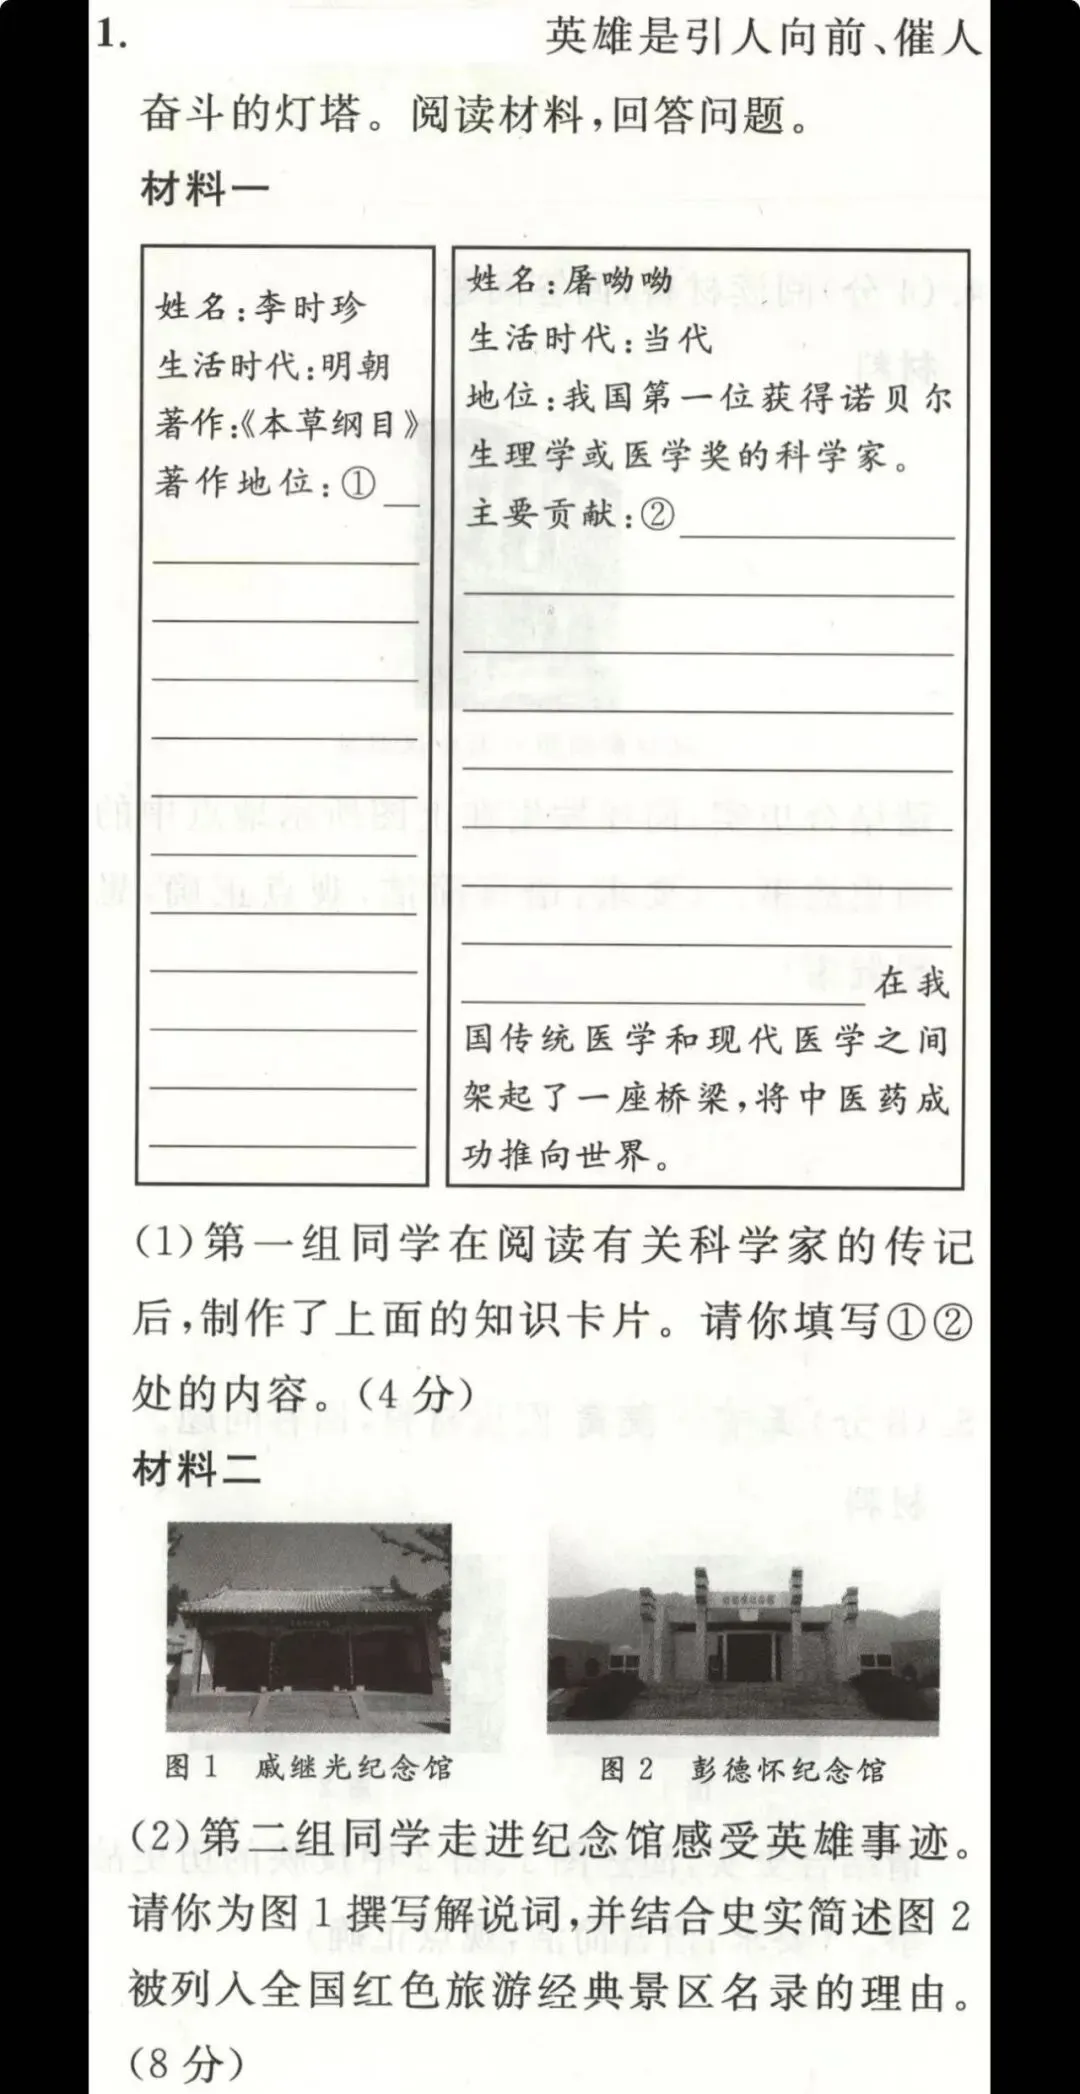 1. 英雄是引人向前、催人
奋斗的灯塔。阅读材料,回答问题。
材料一
姓名:李时珍
生活时代:明朝
著作:《本草纲目》
著作地位:①
姓名:屠呦呦
生活时代:当代
地位:我国第一位获得诺贝尔
生理学或医学奖的科学家。
主要贡献:②
在我
国传统医学和现代医学之间
架起了一座桥梁,将中医药成
功推向世界。
(1)第一组同学在阅读有关科学家的传记
后,制作了上面的知识卡片。请你填写①②
处的内容。(4 分)
材料二
图 1 戚继光纪念馆
图 2 彭德怀纪念馆
(2)第二组同学走进纪念馆感受英雄事迹。
请你为图 1 撰写解说词,并结合史实简述图 2
被列入全国红色旅游经典景区名录的理由。
(8 分)